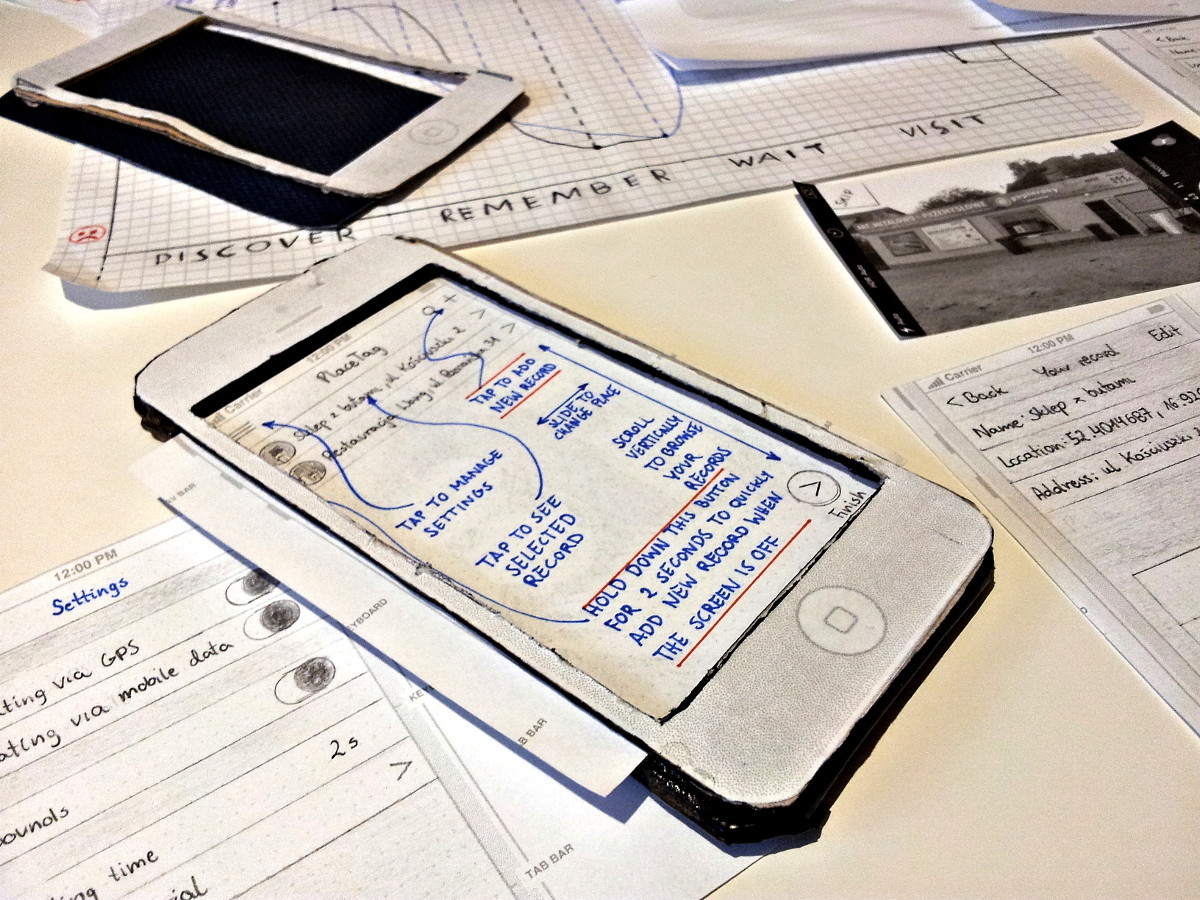 DISCOVER REMEMBER WAIT VISIT
12:00 PM
Carrier
PlaceTag
Sklep z butami, ul. Kościuszki 2
TAP TO ADD
NEW RECORD
SLIDE TO
CHANGE PLACE
SCROLL
VERTICALLY
TO BROWSE
YOUR
RECORDS
TAP TO MANAGE
SETTINGS
TAP TO SEE
SELECTED
RECORD
HOLD DOWN THIS BUTTON
FOR 2 SECONDS TO QUICKLY
ADD NEW RECORD WHEN
THE SCREEN IS OFF
Finish
12:00 PM
Carrier
< Back Your record Edit
Name: sklep z butami
Location: 52.4014687, 16.92
Address: ul Kościuszki
< Back
Name
12:00 PM
Settings
ating via GPS
ating via mobile data
2s
ounds
ing time
ial
NAV BAR
KEYBOARD
TAB BAR